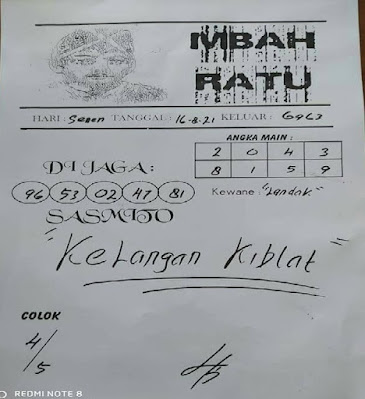 MBAH
RATU
HARI : Senen TANGGAL : 16-8-21 KELUAR :
ANGKA MAIN :
2 0 4 3
8 1 5 9
DI JAGA :
96 53 02 47 81
Kewane : "Landak"
SASMITO
"Kelangan Kiblat"
COLOK
4/5
REDMI NOTE 8